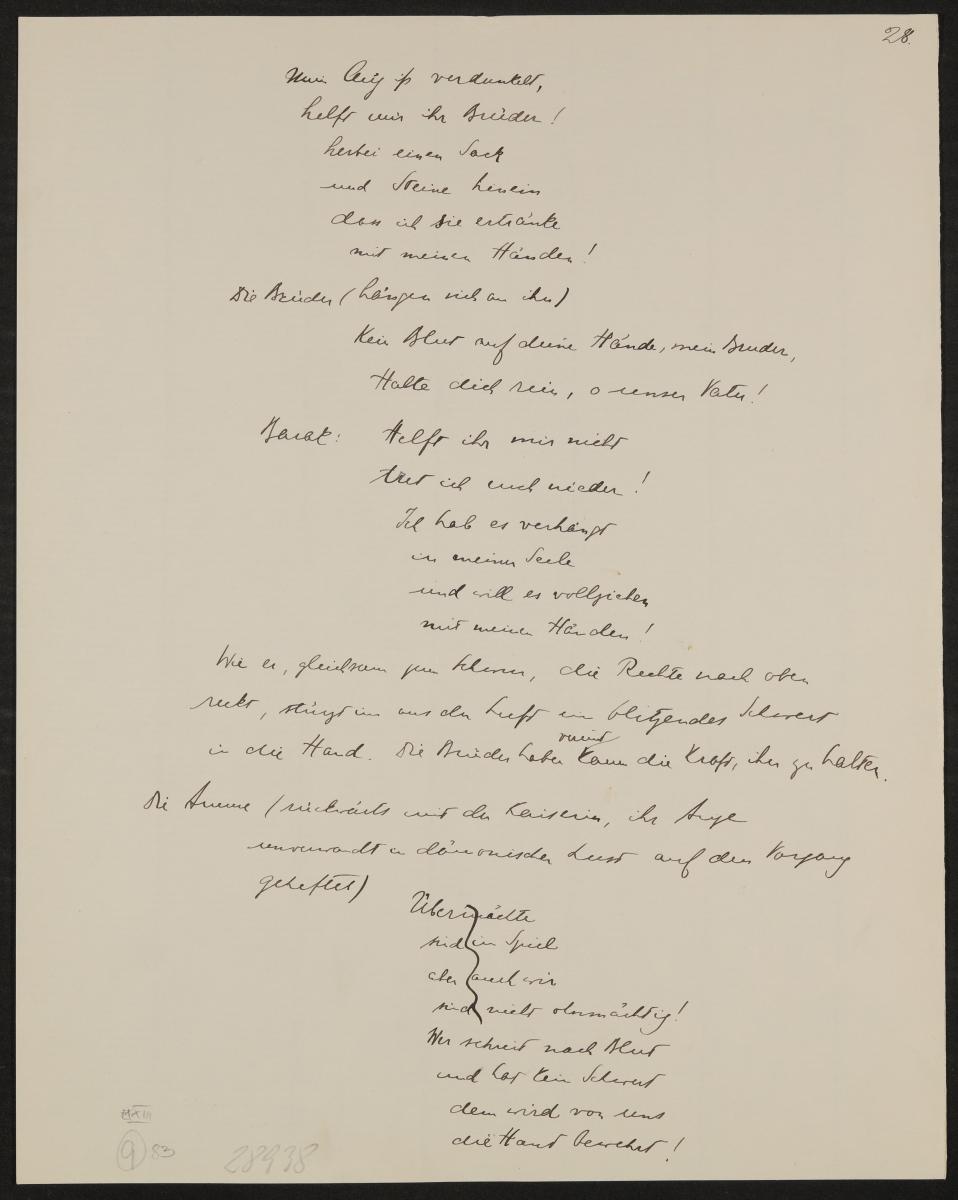 28.
Mein Aug ist verdunkelt,
helft mir ihr Brüder!
herbei einen Sack
und Steine hinein
dass ich sie ertränke
mit meinen Händen!
Die Brüder (hängen sich an ihn)
Kein Blut auf deine Hände, mein Bruder,
Halte dich rein, o unser Vater!
Barak: Helft ihr mir nicht
tret ich euch nieder!
Ich hab es verhängt
in meiner Seele
und will es vollziehen
mit meinen Händen!
Wie er, gleichsam zum Schwur, die Rechte nach oben
reckt, stürzt im aus der Luft ein blitzendes Schwert
vereint
in die Hand. Die Brüder haben kaum die Kraft, ihn zu halten.
Die Amme (rückwärts mit der Kaiserin, ihr Auge
unverwandt in dämonischer Lust auf den Vorgang
geheftet)
Übermächte
sind im Spiel
aber auch wir
sind nicht ohnmächtig!
Wer schreit nach Blut
und hat kein Schwert
dem wird von uns
die Hand bewehrt!
9 83
28938